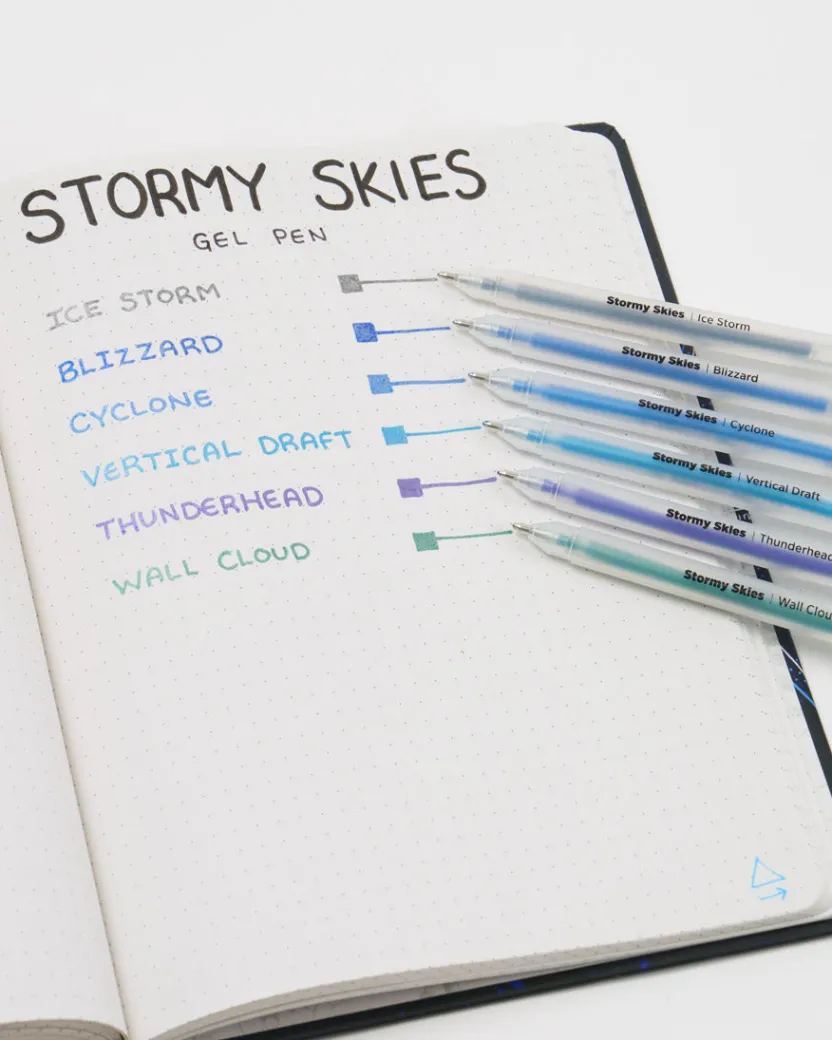 STORMY SKIES
GEL PEN
ICE STORM
BLIZZARD
CYCLONE
VERTICAL DRAFT
THUNDERHEAD
WALL CLOUD
Stormy Skies | Ice Storm
Stormy Skies | Blizzard
Stormy Skies | Cyclone
Stormy Skies | Vertical Draft
Stormy Skies | Thunderhead
Stormy Skies | Wall Clou